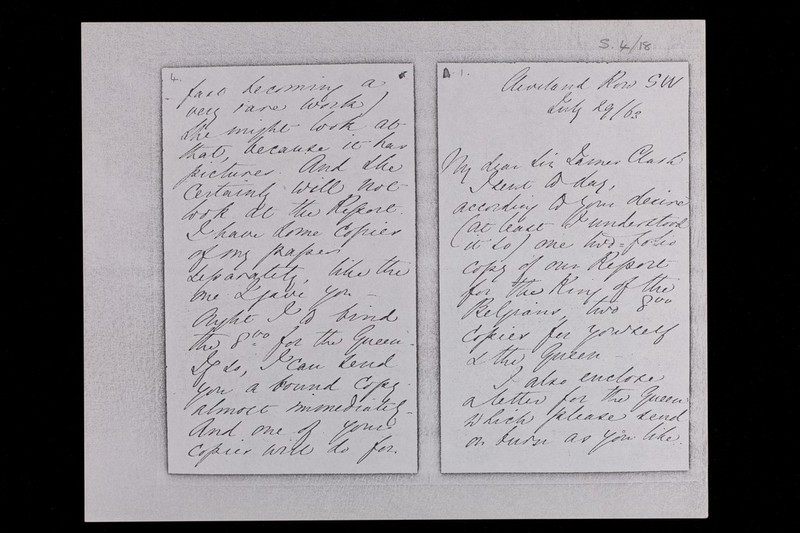 S. 4/18
4.
fast becoming a
very rare work)
She might look at
that, because it has
pictures. And she
certainly will not
look at the Report.
I have some copies
of my paper
separately, like the
one I gave you –
Ought I to bind
the 8vo for the Queen.
If so, I can send
you a bound copy
almost immediately.
And one of your
copies will do for
1.
Cleveland Row SW
July 29/63
My dear Sir James Clark
I sent to day,
according to your desire
(at least I understood
it so) one two=folio
copy of our Report
for the King of the
Belgians, two 8vo
copies for yourself
& the Queen –
I also enclose
a letter for the Queen
which please send
or burn as you like.